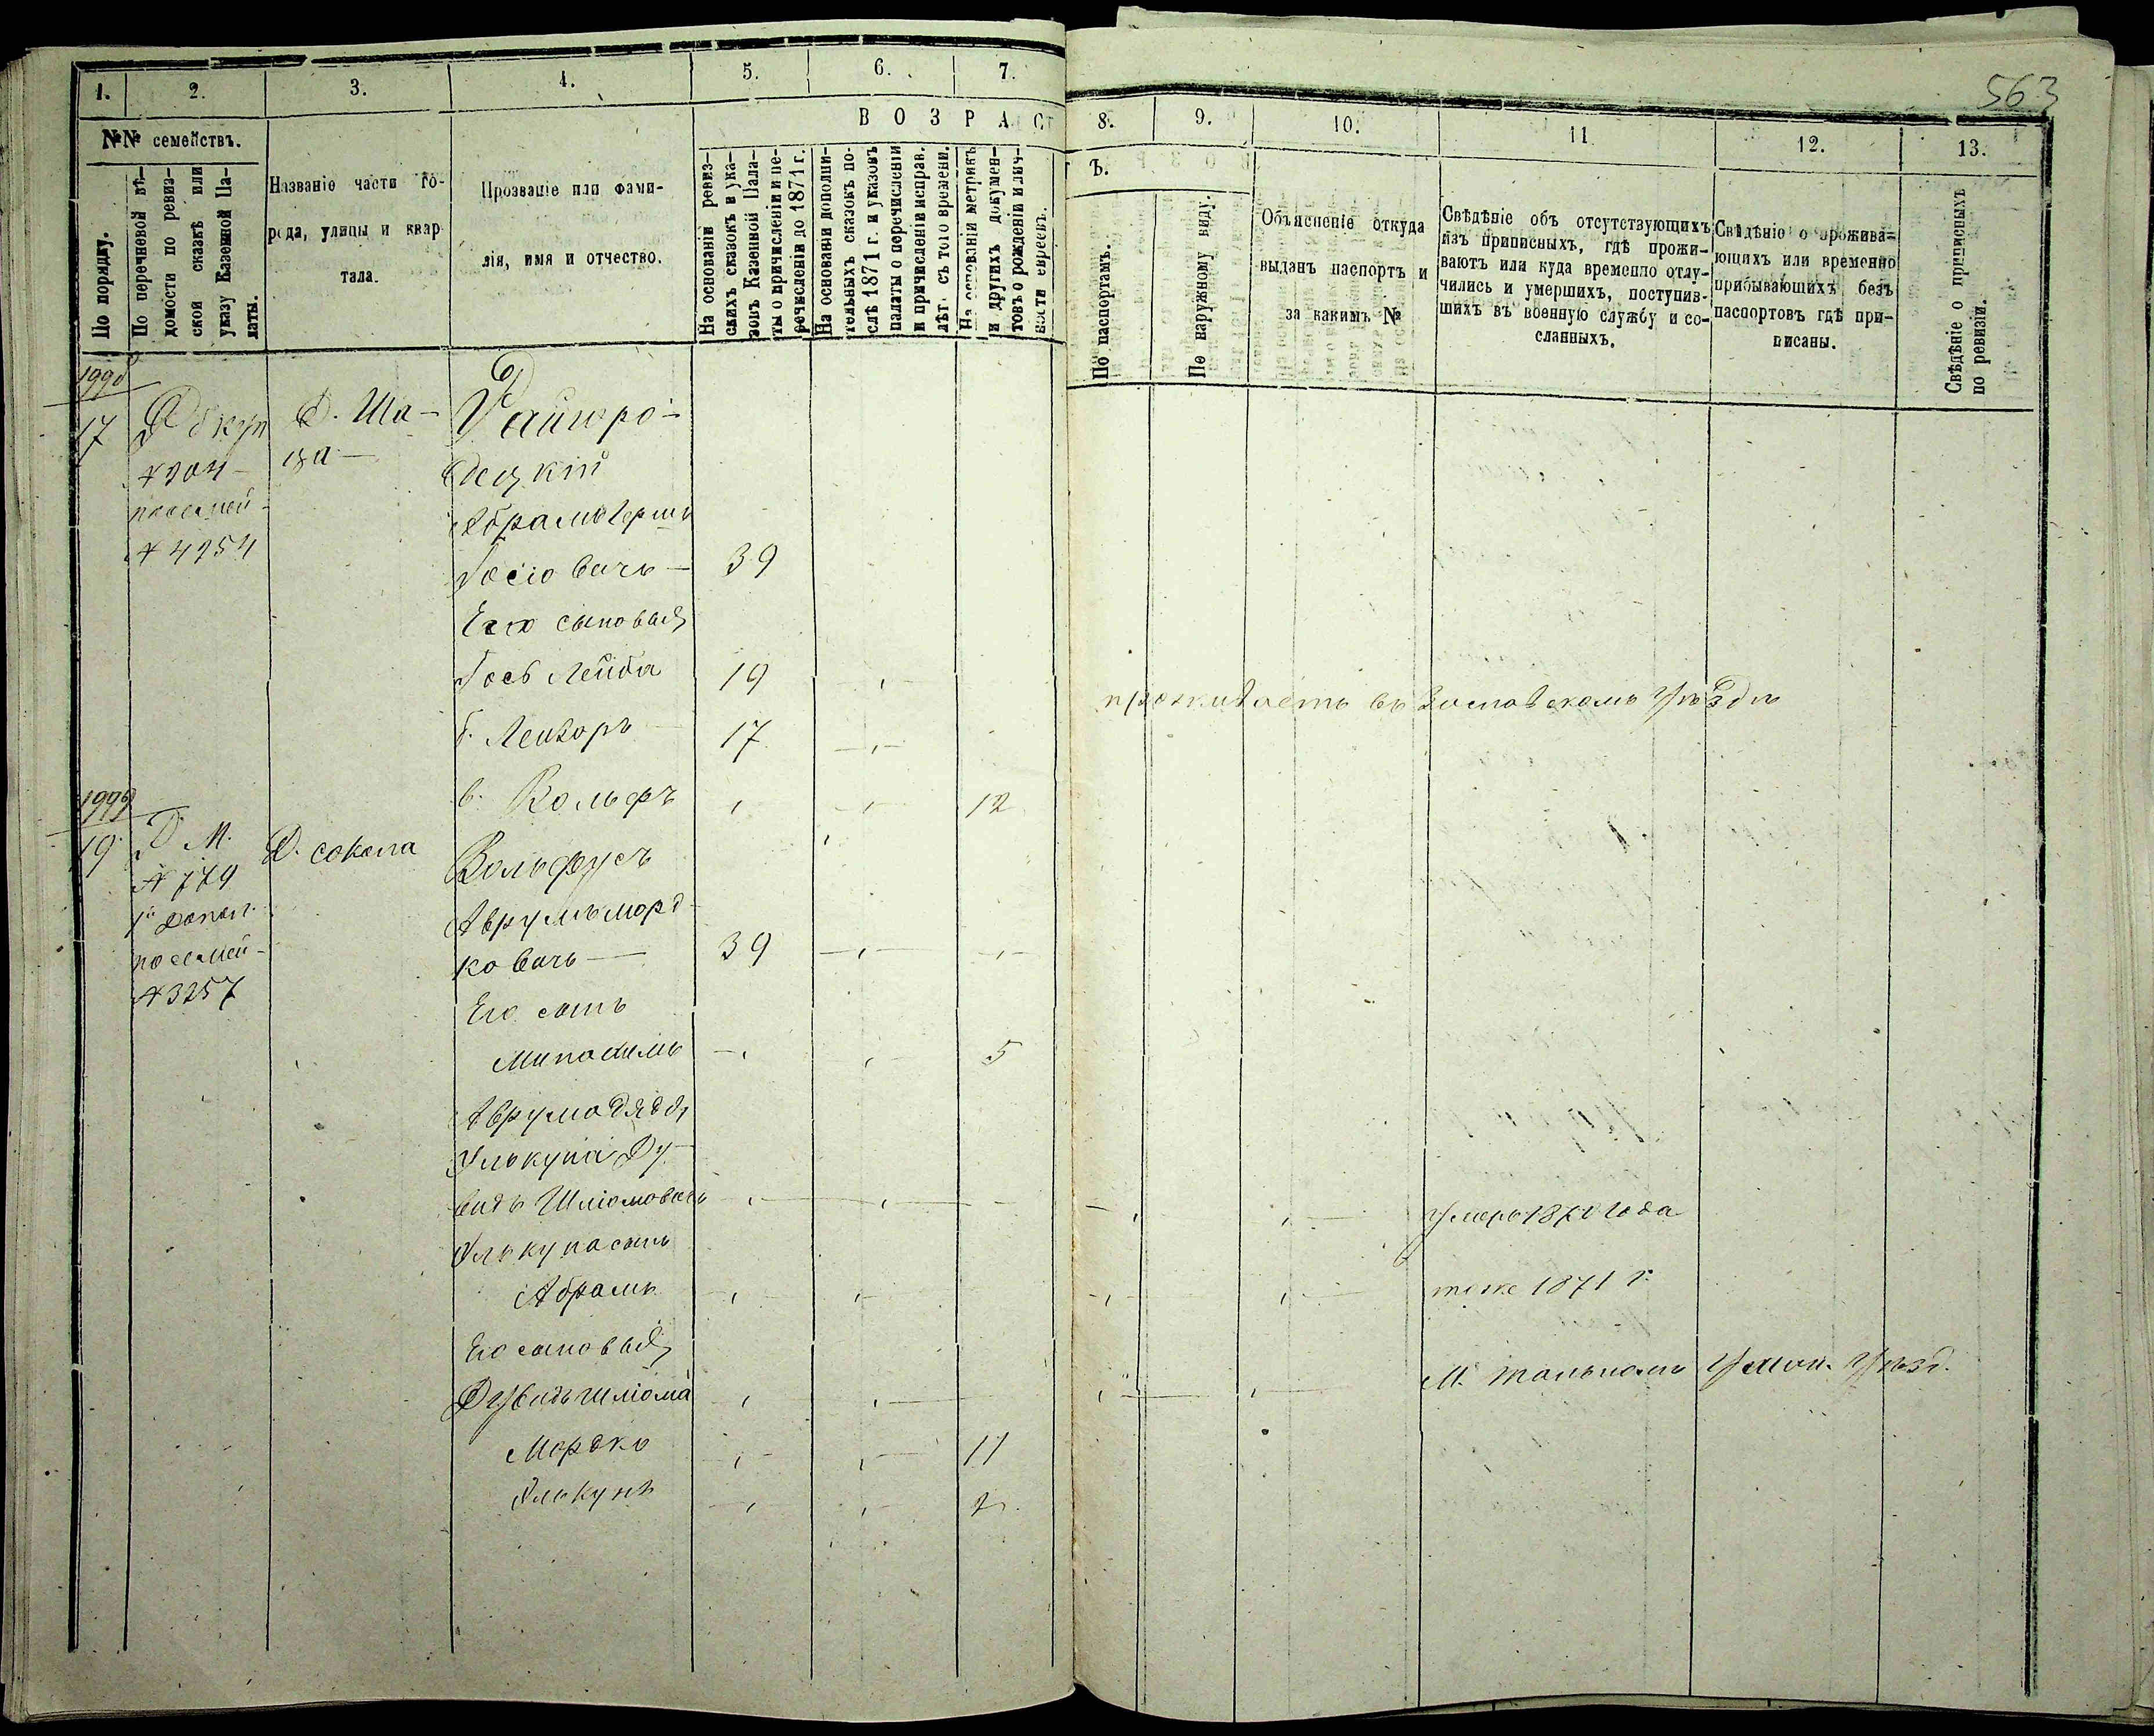 563
1. 2. 3. 4. 5. 6. 7. 8. 9. 10. 11. 12. 13.
№№ семействъ.
По порядку.
По перечневой вѣ-
домости по ревиз-
ской сказкѣ или
указу Казенной Па-
латы.
Названіе части го-
рода, улицы и квар-
тала.
Прозваніе или фами-
лія, имя и отчество.
ВОЗРАСТЪ.
На основаніи ревиз-
скихъ сказокъ и ука-
зовъ Казенной Пала-
ты о причисленіи и пе-
речисленіи до 1871 г.
На основаніи дополни-
тельныхъ сказокъ по-
слѣ 1871 г. и указовъ
палаты о перечисленіи
и причисленіи исправ.
лѣт. съ того времени.
На основаніи метрикъ
и другихъ докумен-
товъ о рожденіи и лич-
ности евреевъ.
По паспортамъ.
По наружному виду.
Объясненіе откуда
выданъ паспортъ и
за какимъ №
Свѣдѣніе объ отсутствующихъ
изъ приписныхъ, гдѣ прожи-
ваютъ или куда временно отлу-
чились и умершихъ, поступив-
шихъ въ военную службу и со-
сланныхъ.
Свѣдѣніе о прожива-
ющихъ или временно
прибывающихъ безъ
паспортовъ гдѣ при-
писаны.
Свѣдѣніе о приписныхъ
по ревизіи.
1998
17 Д. Ша- Райгро-
№ 304 ца децкій
посемей- Абрамъ Герш
№ 4254 Іосіовичъ 39
Его сыновья
Іось Лейба 19
проживаетъ въ Заславскомъ Уѣздѣ
б. Лейзоръ 17
в. Вольфъ 12
1999
19 Д. М. Д. сокола Вольфусъ
№ 779 Аврумъ Морд-
1й допол. ковичъ 39
посемей-
№ 3257 Его сынъ
Минахимъ 5
Аврума дядя
Элькуна Ду-
видъ Шліомовичъ умеръ 1870 года
Элькуна сынъ
Абрамъ тоже 1871 г.
Его сыновья
Дувидъ Шліома М. Тальномъ Уман. Уѣзд.
Мордко 11
Элькунъ 2